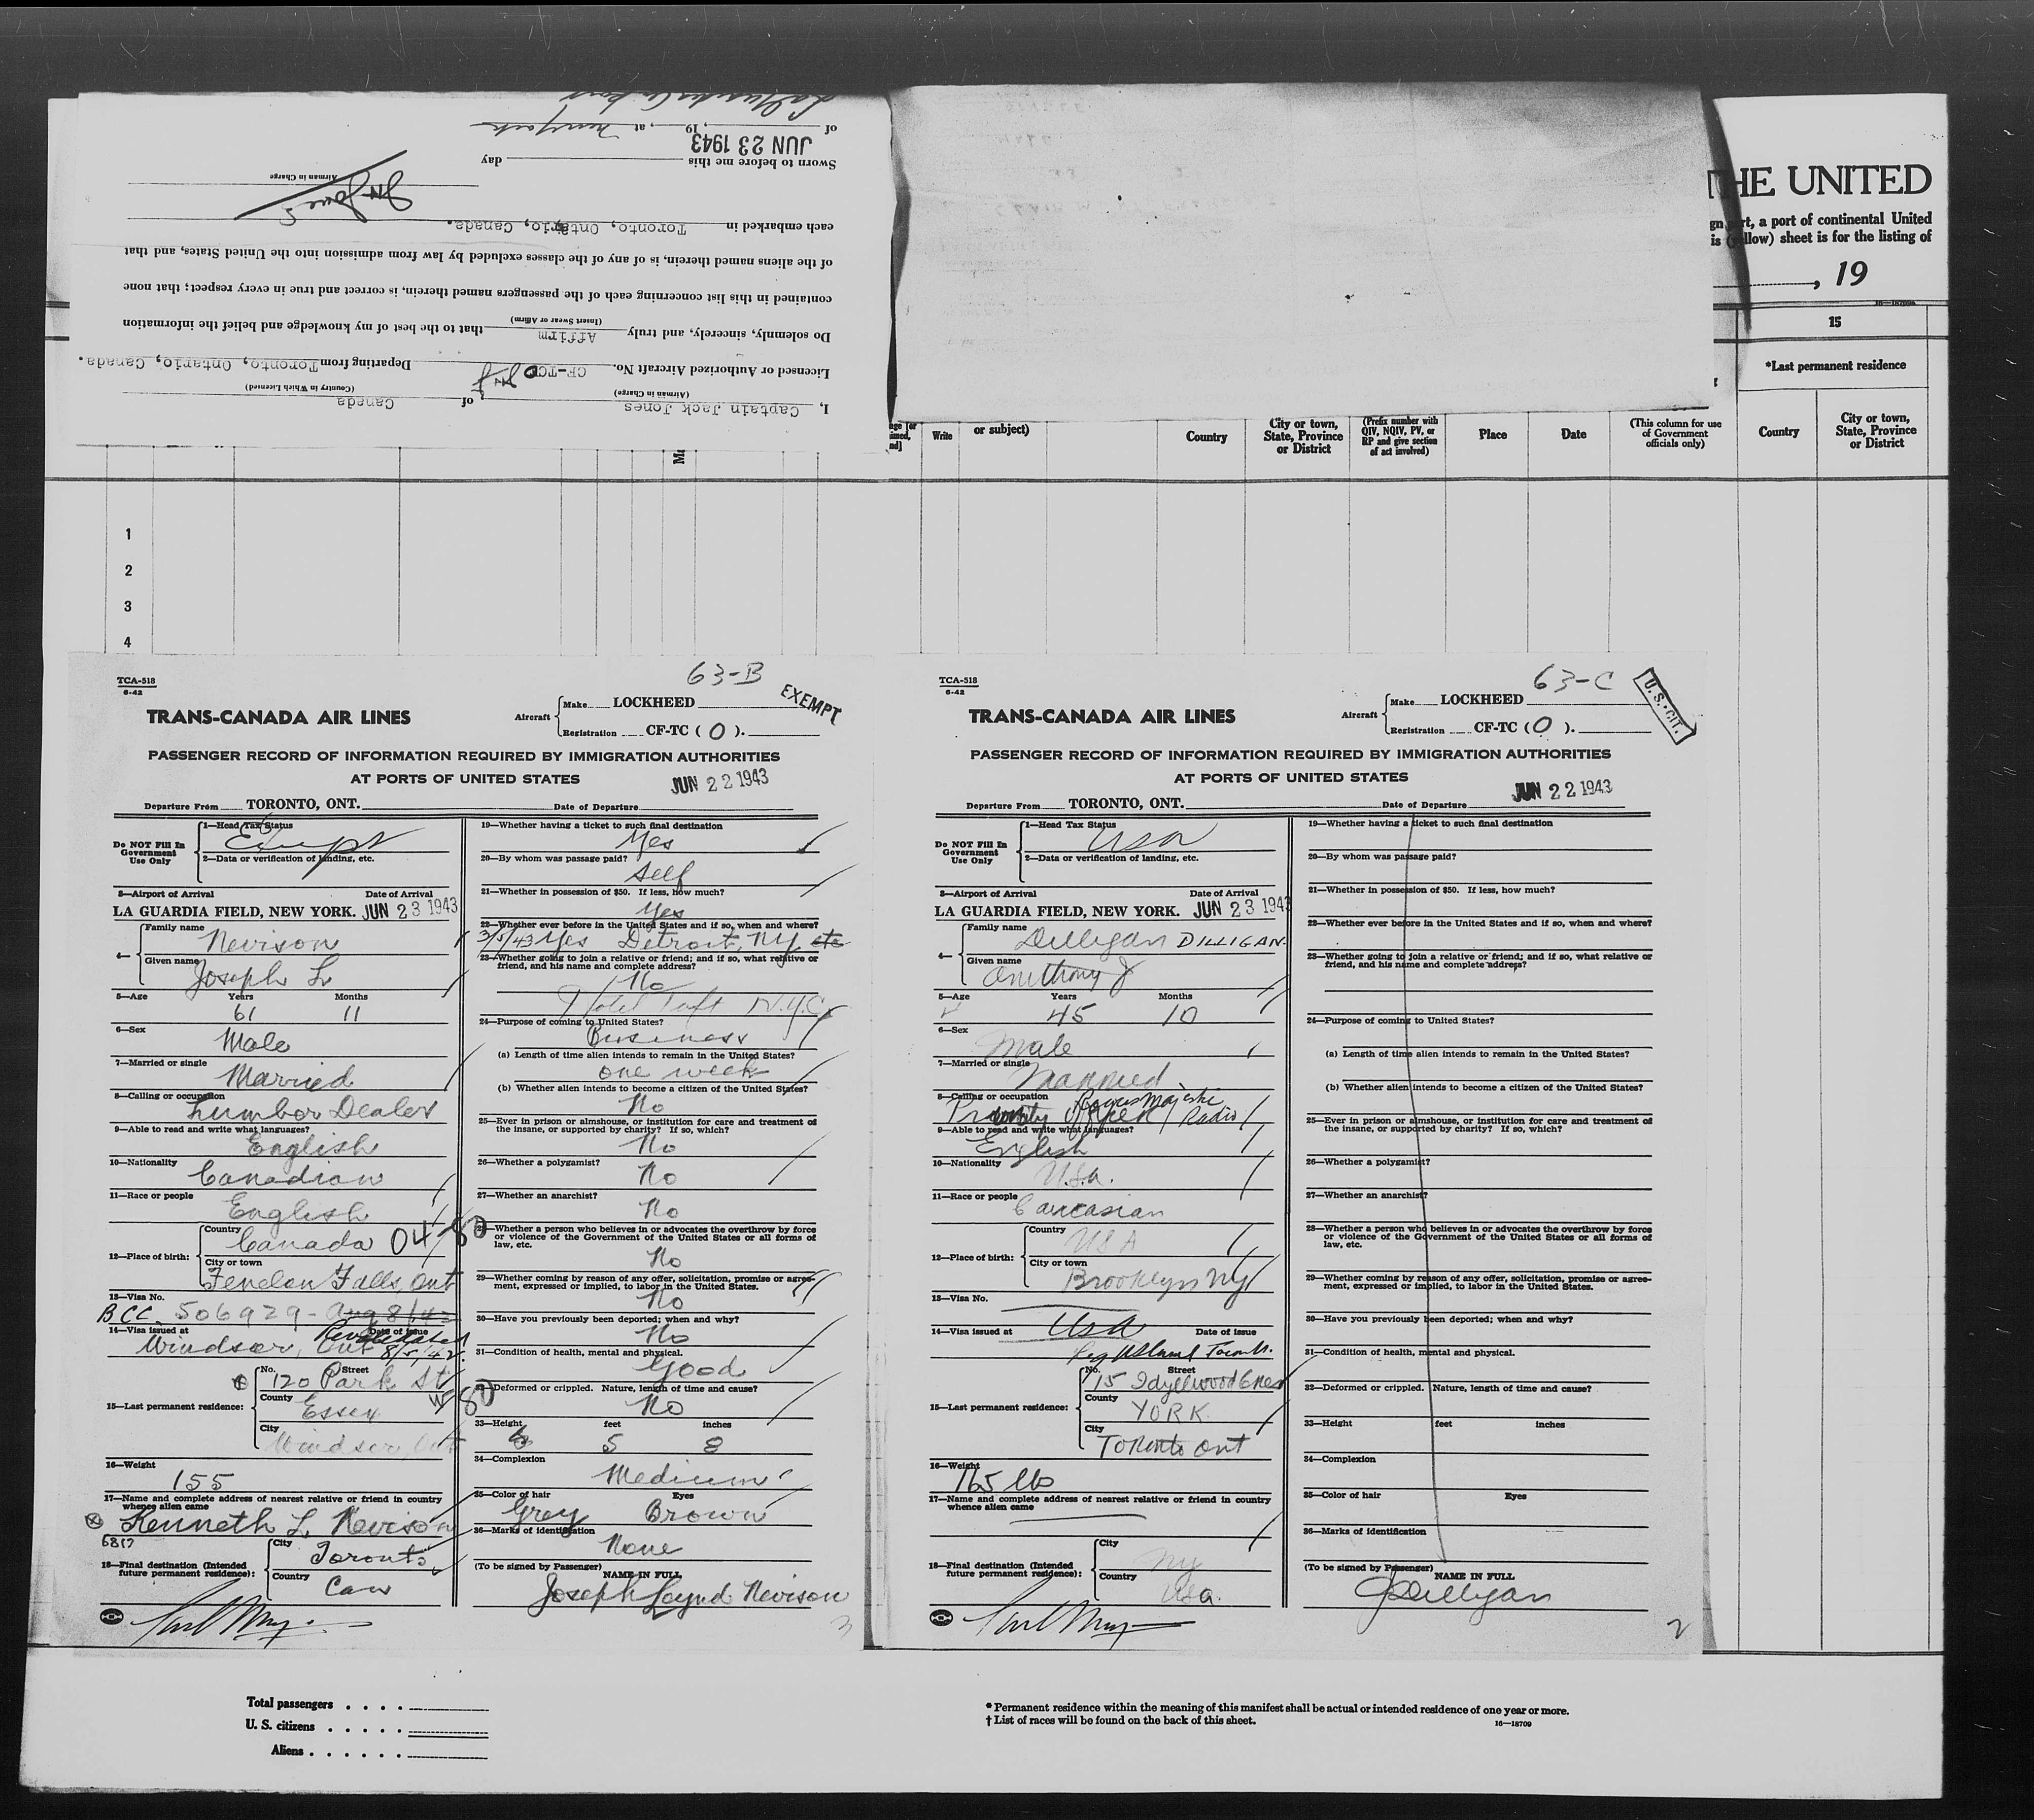 La Guardia Airport
of , 19 , at New York
JUN 23 1943
Sworn to before me this day
Airman in Charge
JH Jones
each embarked in Toronto, Ontario, Canada.
of the aliens named therein, is of any of the classes excluded by law from admission into the United States, and that
contained in this list concerning each of the passengers named therein, is correct and true in every respect; that none
(Insert Swear or Affirm)
Do solemnly, sincerely, and truly Affirm that to the best of my knowledge and belief the information
Licensed or Authorized Aircraft No. CF-TCO Departing from Toronto, Ontario, Canada.
(Airman in Charge) (Country in Which Licensed)
I, Captain Jack Jones, of Canada
THE UNITED
rt, a port of continental United
sheet is for the listing of
, 19
15
*Last permanent residence
Write or subject) Country City or town, State, Province or District (Prefix number with QIV, NQIV, PV, or RP and give section of act involved) Place Date (This column for use of Government officials only) Country City or town, State, Province or District
1
2
3
4
63-B
TCA-518
6-42
EXEMPT
TRANS-CANADA AIR LINES
Aircraft Make LOCKHEED
Registration CF-TC (O).
PASSENGER RECORD OF INFORMATION REQUIRED BY IMMIGRATION AUTHORITIES
AT PORTS OF UNITED STATES
JUN 22 1943
Departure From TORONTO, ONT. Date of Departure
Do NOT Fill In Government Use Only
1—Head Tax Status
Exempt
2—Data or verification of landing, etc.
3—Airport of Arrival Date of Arrival
LA GUARDIA FIELD, NEW YORK. JUN 23 1943
4— Family name
Nevison
Given name
Joseph L
5—Age Years Months
61 11
6—Sex
Male
7—Married or single
Married
8—Calling or occupation
Lumber Dealer
9—Able to read and write what languages?
English
10—Nationality
Canadian
11—Race or people
English
12—Place of birth: Country
Canada 04-80
City or town
Fenelon Falls, Ont
13—Visa No.
BCC. 506929 - Aug 8/42
14—Visa issued at Date of issue
Windsor, Ont Revalidated 8/5/42
15—Last permanent residence: No. Street
120 Park St W
County
Essex
80
City
Windsor, Ont
16—Weight
155
17—Name and complete address of nearest relative or friend in country whence alien came
Kenneth L Nevison
6817
18—Final destination (Intended future permanent residence): City
Toronto
Country
Can
19—Whether having a ticket to such final destination
Yes
20—By whom was passage paid?
Self
21—Whether in possession of $50. If less, how much?
Yes
22—Whether ever before in the United States and if so, when and where?
3/5/43 Yes Detroit, NY etc
23—Whether going to join a relative or friend; and if so, what relative or friend, and his name and complete address?
No
Hotel Taft N.Y.C.
24—Purpose of coming to United States?
Business
(a) Length of time alien intends to remain in the United States?
one week
(b) Whether alien intends to become a citizen of the United States?
No
25—Ever in prison or almshouse, or institution for care and treatment of the insane, or supported by charity? If so, which?
No
26—Whether a polygamist?
No
27—Whether an anarchist?
No
28—Whether a person who believes in or advocates the overthrow by force or violence of the Government of the United States or all forms of law, etc.
No
29—Whether coming by reason of any offer, solicitation, promise or agreement, expressed or implied, to labor in the United States.
No
30—Have you previously been deported; when and why?
No
31—Condition of health, mental and physical.
Good
32—Deformed or crippled. Nature, length of time and cause?
No
33—Height feet inches
5 8
34—Complexion
Medium
35—Color of hair Eyes
Grey Brown
36—Marks of identification
None
(To be signed by Passenger) NAME IN FULL
Joseph Loynd Nevison
3
63-C
TCA-518
6-42
U.S. CIT.
TRANS-CANADA AIR LINES
Aircraft Make LOCKHEED
Registration CF-TC (O ).
PASSENGER RECORD OF INFORMATION REQUIRED BY IMMIGRATION AUTHORITIES
AT PORTS OF UNITED STATES
JUN 22 1943
Departure From TORONTO, ONT. Date of Departure
Do NOT Fill In Government Use Only
1—Head Tax Status
USA
2—Data or verification of landing, etc.
3—Airport of Arrival Date of Arrival
LA GUARDIA FIELD, NEW YORK. JUN 23 1943
4— Family name
Dilligan DILLIGAN
Given name
Anthony J
5—Age Years Months
45 10
6—Sex
Male
7—Married or single
Married
8—Calling or occupation
Rogers Majestic Radio
9—Able to read and write what languages?
English
10—Nationality
U.S.A.
11—Race or people
Caucasian
12—Place of birth: Country
USA
City or town
Brooklyn NY
13—Visa No.
14—Visa issued at Date of issue
USA
15—Last permanent residence: No. Street
15 Idyllwood Cres
County
YORK
City
Toronto Ont
16—Weight
165 lbs
17—Name and complete address of nearest relative or friend in country whence alien came
18—Final destination (Intended future permanent residence): City
NY
Country
USA.
19—Whether having a ticket to such final destination
20—By whom was passage paid?
21—Whether in possession of $50. If less, how much?
22—Whether ever before in the United States and if so, when and where?
23—Whether going to join a relative or friend; and if so, what relative or friend, and his name and complete address?
24—Purpose of coming to United States?
(a) Length of time alien intends to remain in the United States?
(b) Whether alien intends to become a citizen of the United States?
25—Ever in prison or almshouse, or institution for care and treatment of the insane, or supported by charity? If so, which?
26—Whether a polygamist?
27—Whether an anarchist?
28—Whether a person who believes in or advocates the overthrow by force or violence of the Government of the United States or all forms of law, etc.
29—Whether coming by reason of any offer, solicitation, promise or agreement, expressed or implied, to labor in the United States.
30—Have you previously been deported; when and why?
31—Condition of health, mental and physical.
32—Deformed or crippled. Nature, length of time and cause?
33—Height feet inches
34—Complexion
35—Color of hair Eyes
36—Marks of identification
(To be signed by Passenger) NAME IN FULL
AJDilligan
2
Total passengers . . . .
U. S. citizens . . . . .
Aliens . . . . . .
* Permanent residence within the meaning of this manifest shall be actual or intended residence of one year or more.
† List of races will be found on the back of this sheet.
16—18709